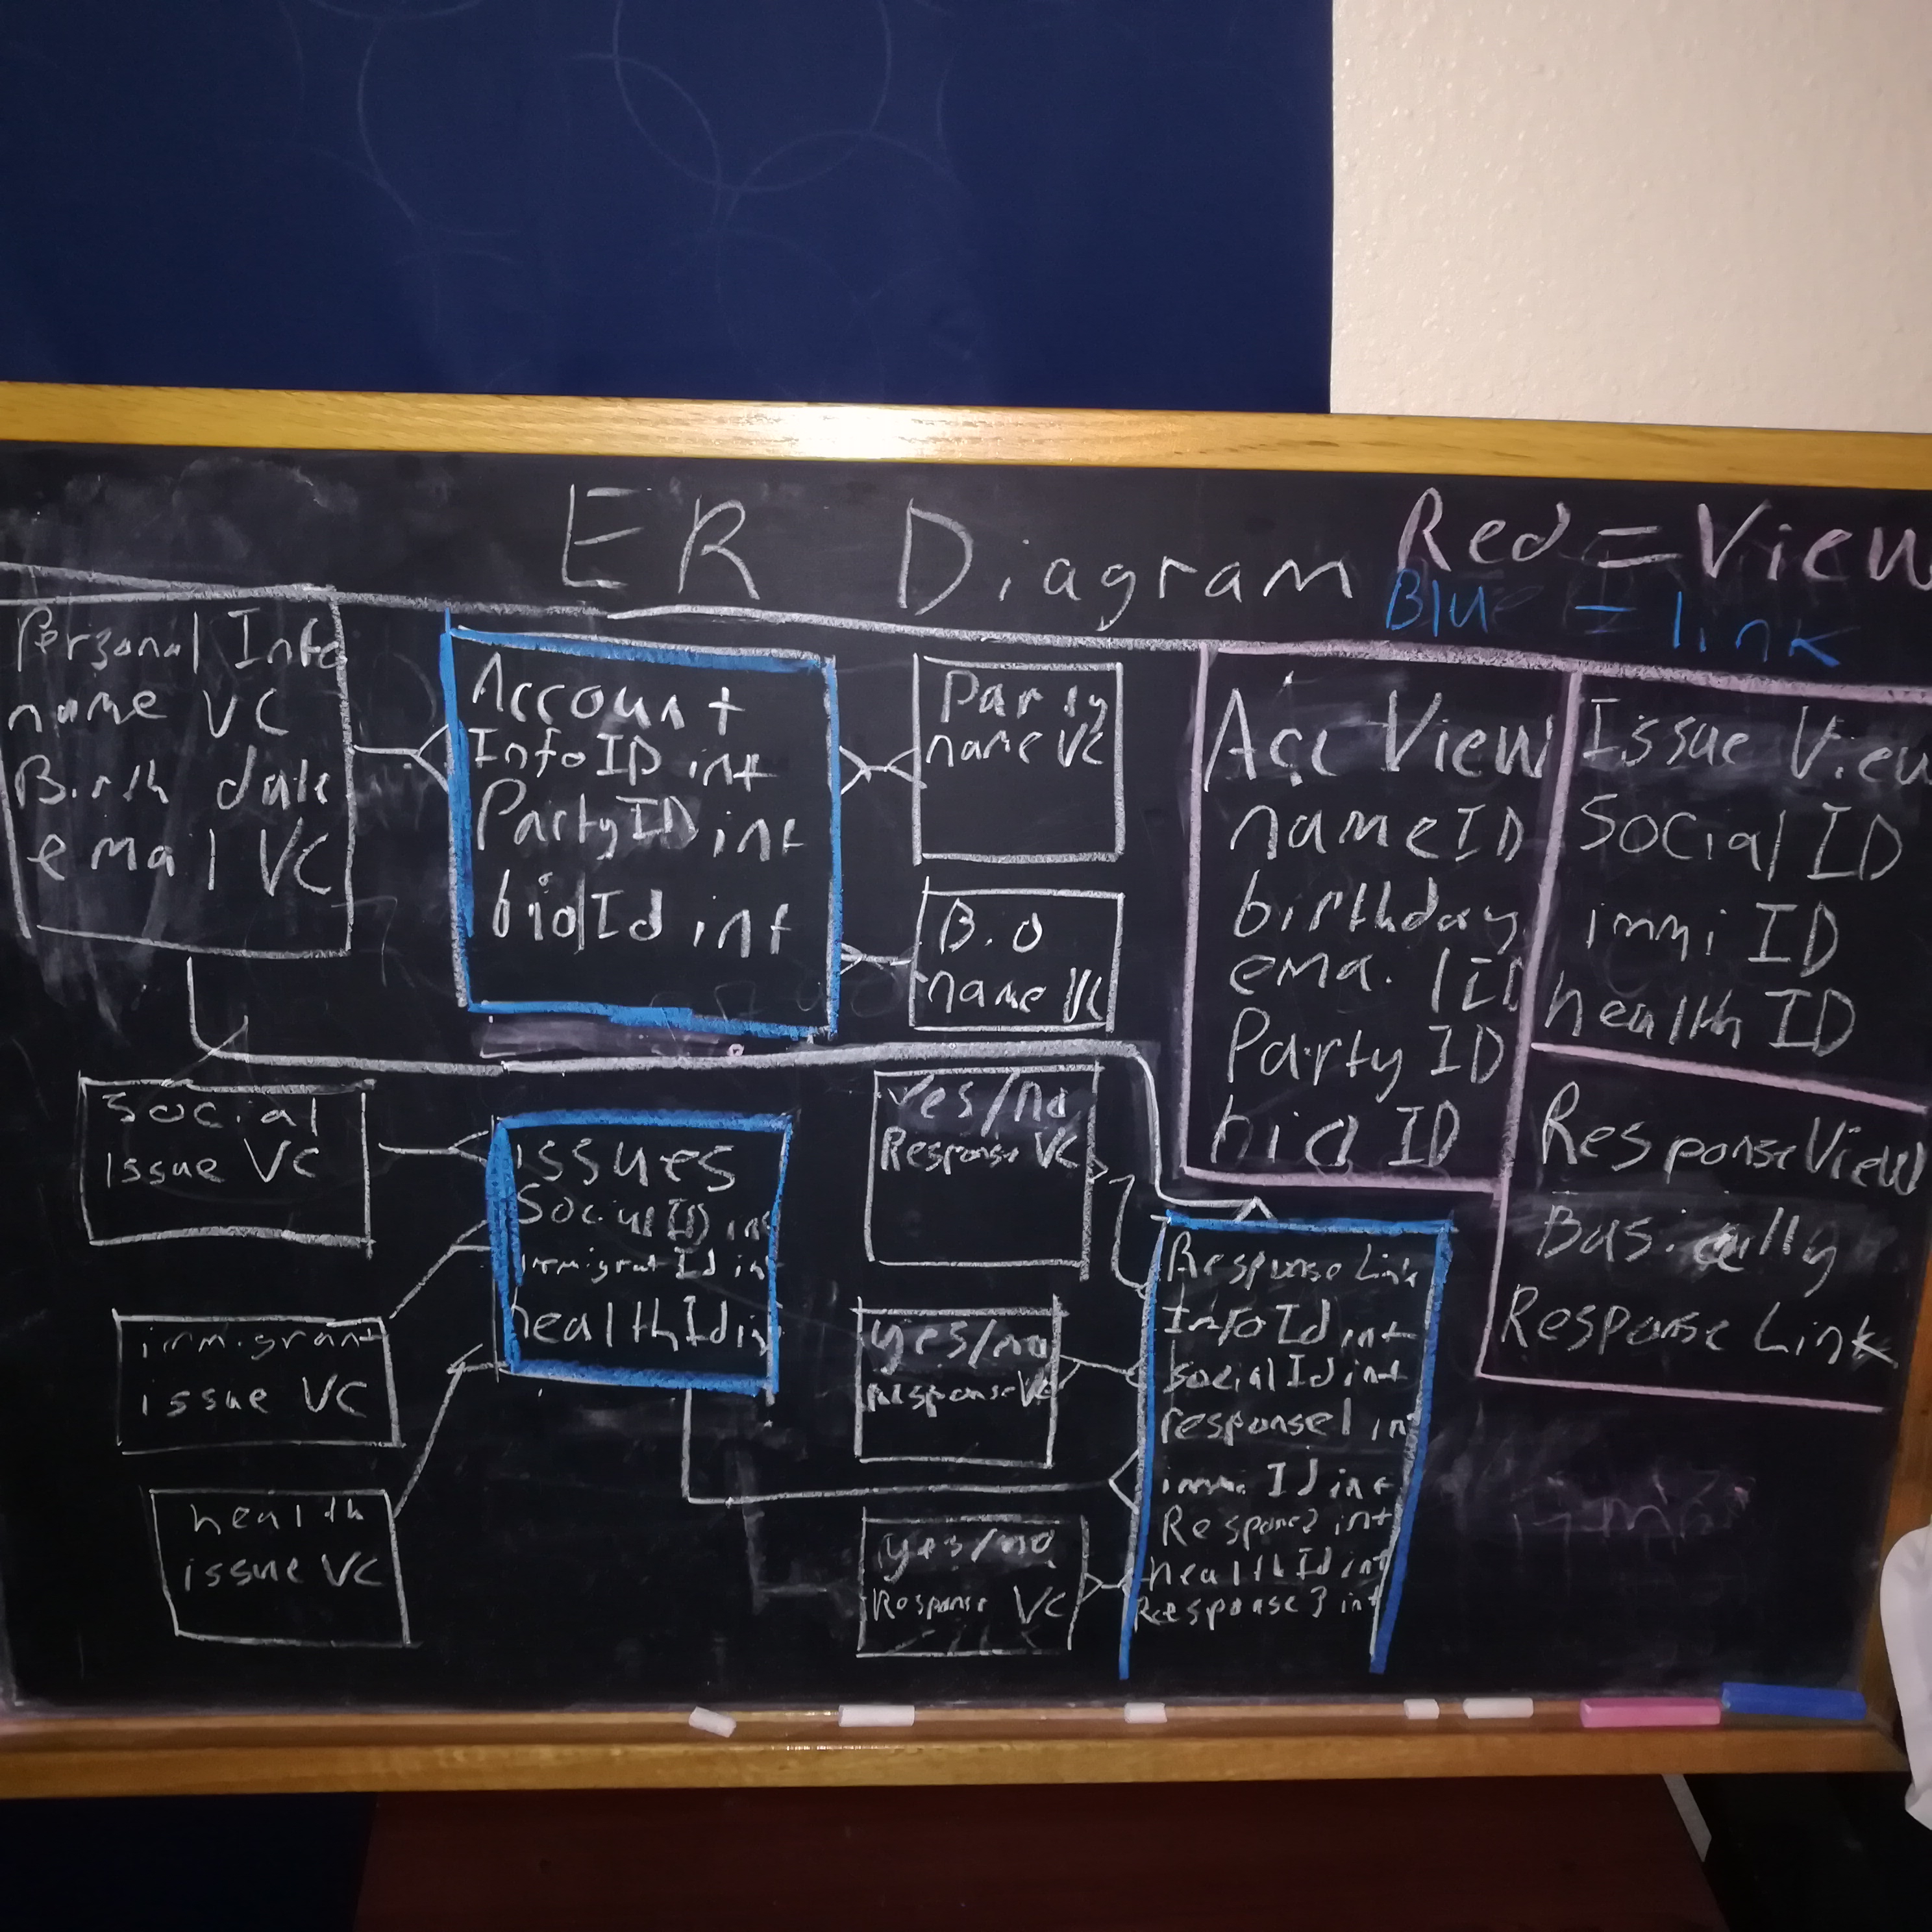 ER Diagram
Red = View
Blue = link
Personal Info
name VC
Birth date
email VC
Account
InfoID int
PartyID int
bioId int
Party
name VC
Bio
name VC
Acc View
nameID
birthday
email ID
Party ID
bio ID
Issue View
Social ID
immi ID
health ID
ResponseView
Basically
Response Link
Social
Issue VC
immigrant
issue VC
health
issue VC
issues
SocialID int
immigrantId int
healthId in
Yes/no
Response VC
yes/no
response VC
yes/no
Response VC
Response Link
InfoId int
SocialId int
response1 int
immi Id int
Response2 int
healthId int
Response3 int